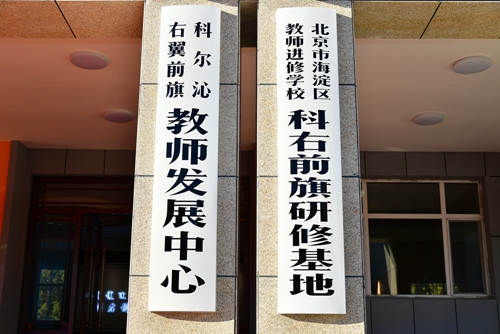 科尔沁
右翼前旗
教师发展中心
北京市海淀区
教师进修学校
科右前旗研修基地